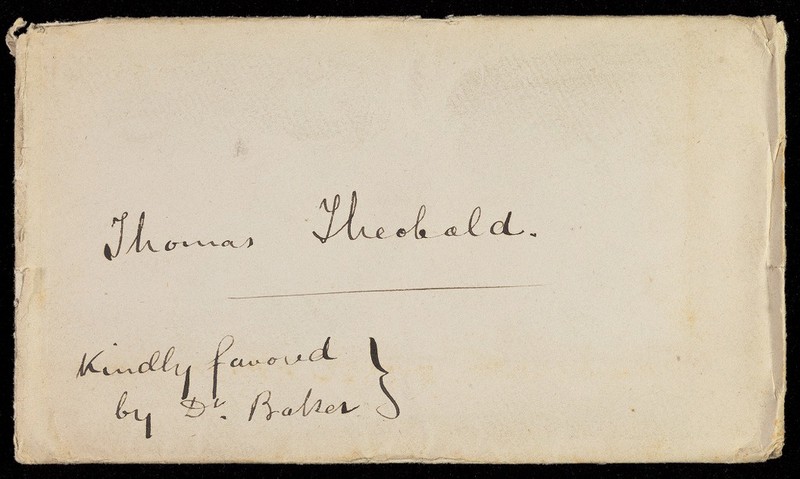 Thomas Theobald.
Kindly favored
by Dr. Baker